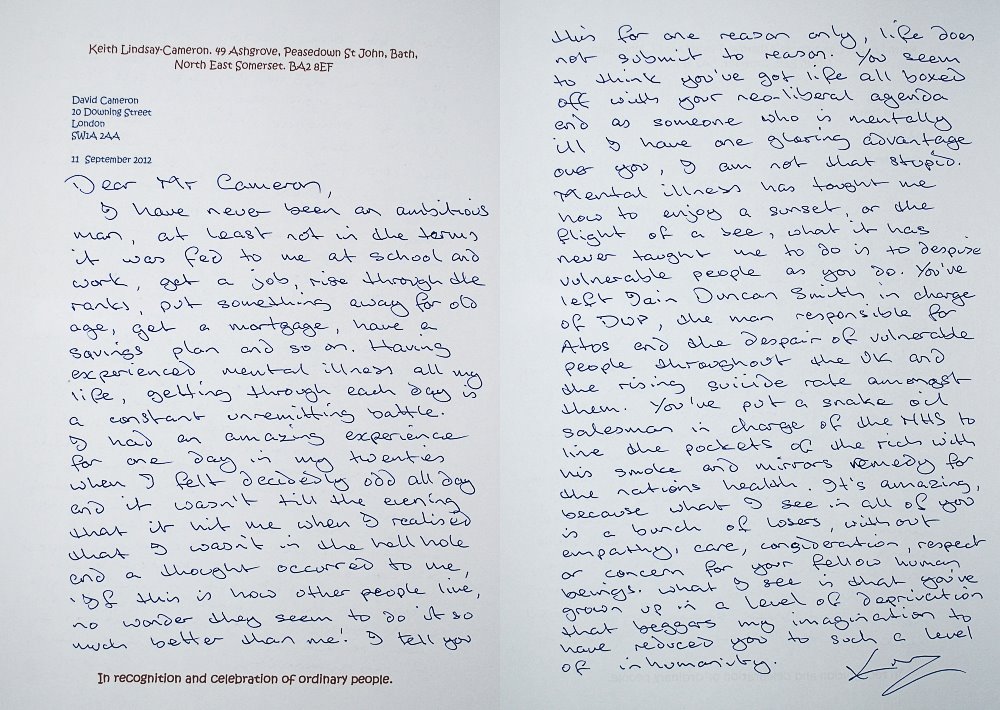 Keith Lindsay-Cameron. 49 Ashgrove, Peasedown St John, Bath,
North East Somerset. BA2 8EF
David Cameron
10 Downing Street
London
SW1A 2AA
11 September 2012
Dear Mr Cameron,
I have never been an ambitious
man, at least not in the terms
it was fed to me at school and
work, get a job, rise through the
ranks, put something away for old
age, get a mortgage, have a
savings plan and so on. Having
experienced mental illness all my
life, getting through each day is
a constant unremitting battle.
I had an amazing experience
for one day in my twenties
when I felt decidedly odd all day
and it wasn't till the evening
that it hit me when I realised
that I wasn't in the hell hole
and a thought occurred to me,
'If this is how other people live,
no wonder they seem to do it so
much better than me! I tell you
In recognition and celebration of ordinary people.
this for one reason only, life does
not submit to reason. You seem
to think you've got life all boxed
off with your neo-liberal agenda
and as someone who is mentally
ill I have one glaring advantage
over you, I am not that stupid.
Mental illness has taught me
how to enjoy a sunset, or the
flight of a bee, what it has
never taught me to do is to despise
vulnerable people as you do. You've
left Iain Duncan Smith in charge
of DWP, the man responsible for
Atos and the despair of vulnerable
people throughout the UK and
the rising suicide rate amongst
them. You've put a snake oil
salesman in charge of the NHS to
line the pockets of the rich with
his smoke and mirrors remedy for
the nations health. It's amazing,
because what I see in all of you
is a bunch of losers, without
empathy, care, consideration, respect
or concern for your fellow human
beings. What I see is that you've
grown up in a level of deprivation
that beggars my imagination to
have reduced you to such a level
of inhumanity.